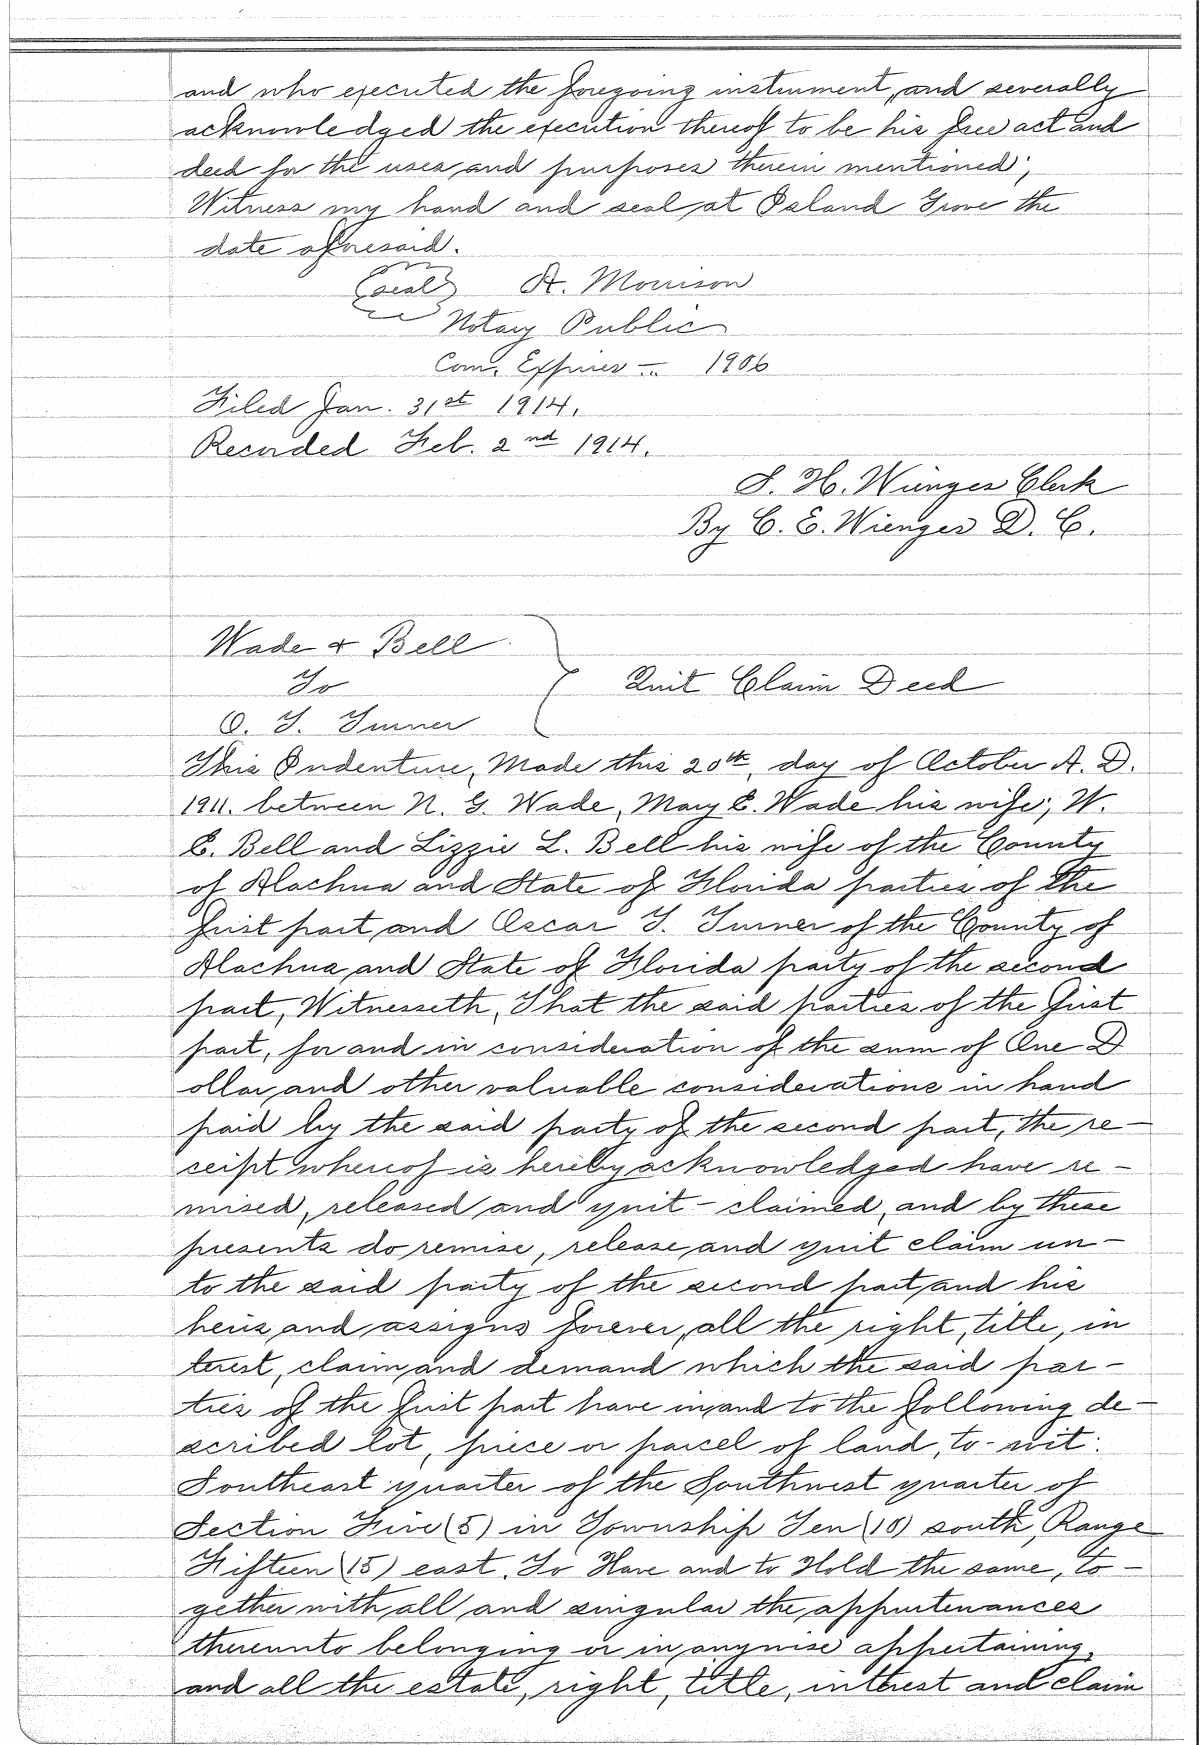 and who executed the foregoing instrument, and severally
acknowledged the execution thereof to be his free act and
deed for the uses and purposes therein mentioned;
Witness my hand and seal at Island Grove the
date aforesaid.
(seal) A. Morrison
Notary Public
Com. Expires - 1906
Filed Jan. 31st 1914.
Recorded Feb. 2nd 1914.
S. H. Wienges Clerk
By C. E. Wienges D. C.
Wade & Bell
To
Quit Claim Deed
O. T. Turner
This Indenture, Made this 20th. day of October A. D.
1911. between N. G. Wade, Mary E. Wade his wife; W.
E. Bell and Lizzie L. Bell his wife of the County
of Alachua and State of Florida parties of the
first part, and Oscar T. Turner of the County of
Alachua, and State of Florida party of the second
part, Witnesseth, That the said parties of the first
part, for and in consideration of the sum of One D
ollar, and other valuable considerations in hand
paid by the said party of the second part, the re-
ceipt whereof is hereby acknowledged have re-
mised, released and quit-claimed, and by these
presents do remise, release, and quit claim un-
to the said party of the second part, and his
heirs, and assigns forever, all the right, title, in
terest, claim, and demand which the said par-
ties of the first part have in, and to the following de-
scribed lot, piece or parcel of land, to-wit:
Southeast quarter of the Southwest quarter of
Section Five (5) in Township Ten (10) south, Range
Fifteen (15) east. To Have and to Hold the same, to-
gether with, all and singular the, appurtenances
thereunto belonging or in, anywise appertaining,
and all the estate, right, title, interest and claim